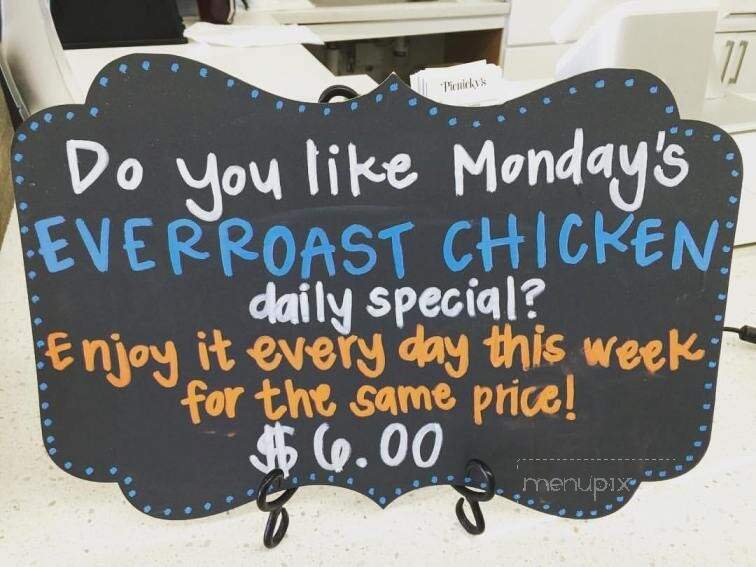 Picnicky's
Do you like Monday's
EVERROAST CHICKEN
daily special?
Enjoy it every day this week
for the same price!
$6.00
menupix